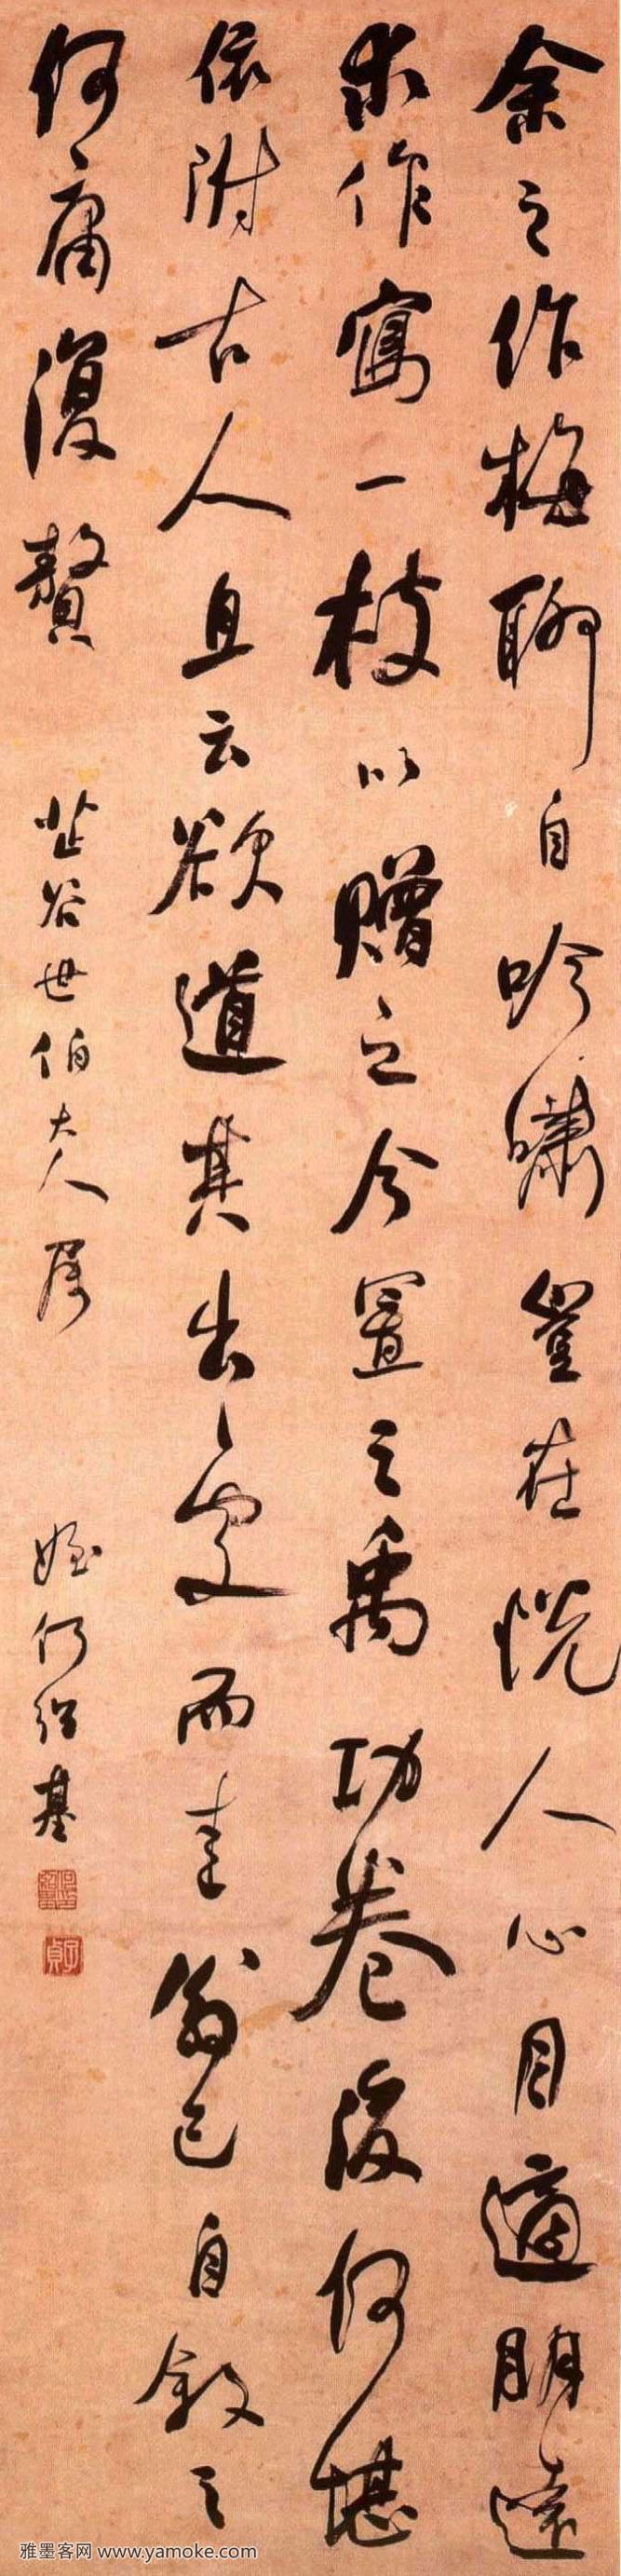 余之作梅聊自吟嘯豈在悦人心目適朋遠
求作寫一枝以贈之今置之禹功卷後何堪
依附古人且云欲道其出處而翁已自敘之
何庸復贅
芷谷世伯大人屬
姪何紹基
子貞
雅墨客网 www.yamoke.com